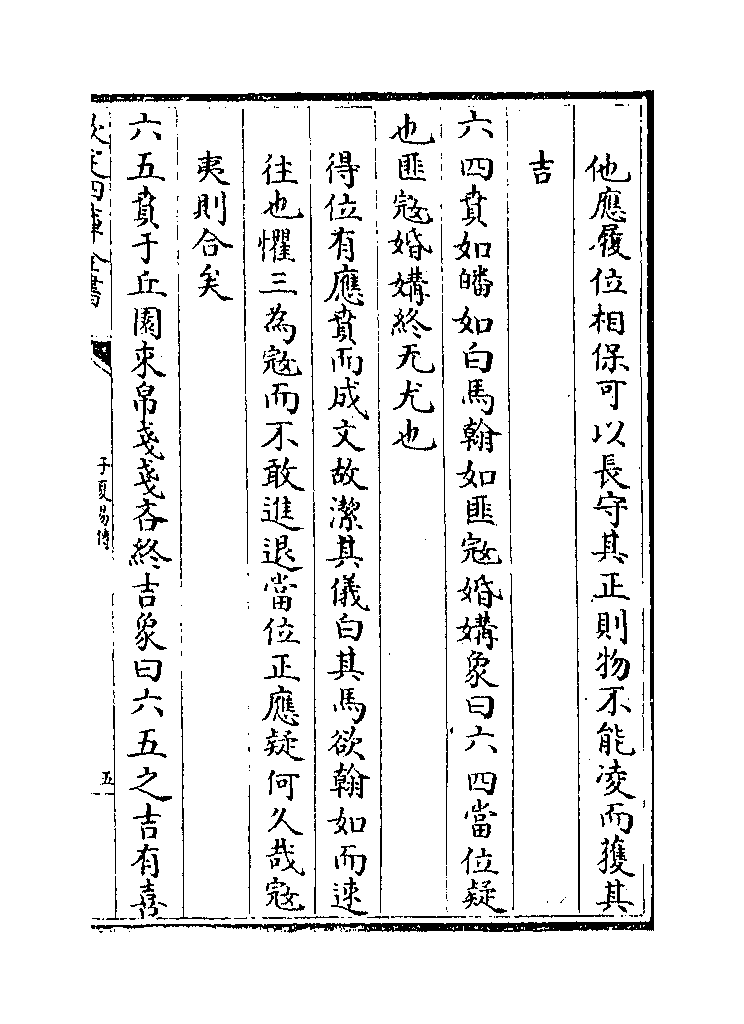 他應履位相保可以長守其正則物不能凌而獲其
吉
六四賁如皤如白馬翰如匪寇婚媾象曰六四當位疑
也匪寇婚媾終无尤也
得位有應賁而成文故潔其儀白其馬欲翰如而速
往也懼三為寇而不敢進退當位正應疑何久哉寇
夷則合矣
六五賁于丘園束帛戔戔吝終吉象曰六五之吉有喜
欽定四庫全書
子夏易傳
五